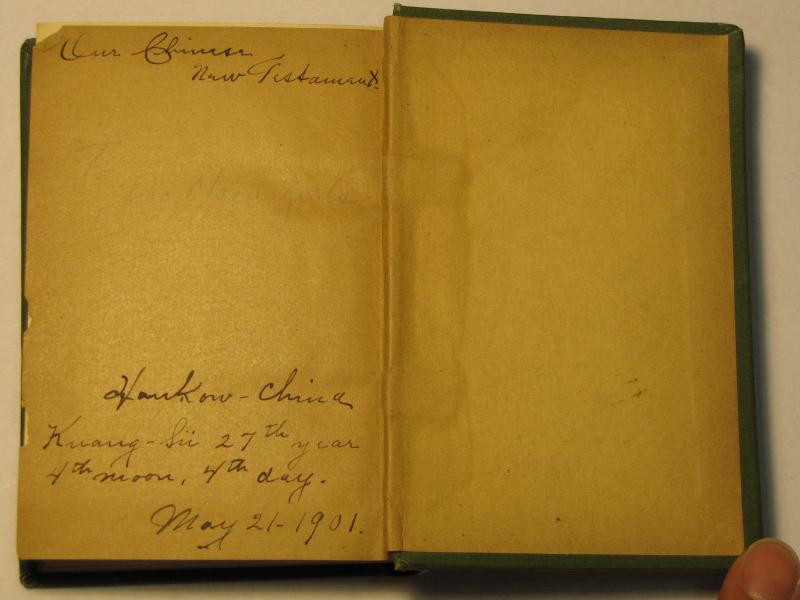 Our Chinese
New Testament.
To
girls
Hankow - China
Kuang-Sü 27th year
4th moon, 4th day.
May 21 - 1901.